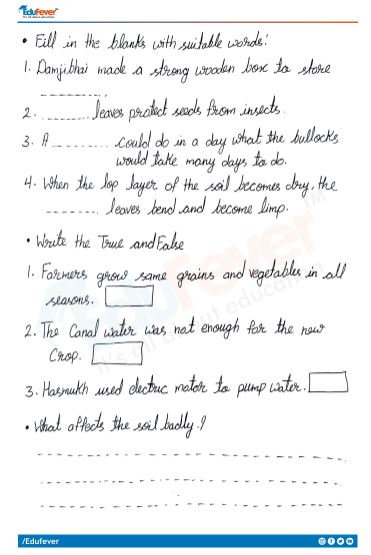 EduFever
It's all about education
• Fill in the blanks with suitable words:
1. Damjibhai made a strong wooden box to store
_ _ _ _ _ _ _ _ _.
2. _ _ _ _ _ _ leaves protect seeds from insects.
3. A _ _ _ _ _ _ _ could do in a day what the bullocks
would take many days to do.
4. When the top layer of the soil becomes dry, the
_ _ _ _ _ _ _. leaves bend and become limp.
• Write the True and False
1. Farmers grow same grains and vegetables in all
seasons.
2. The Canal water was not enough for the new
Crop.
3. Hasmukh used electric motor to pump water.
• What affects the soil badly?
/Edufever